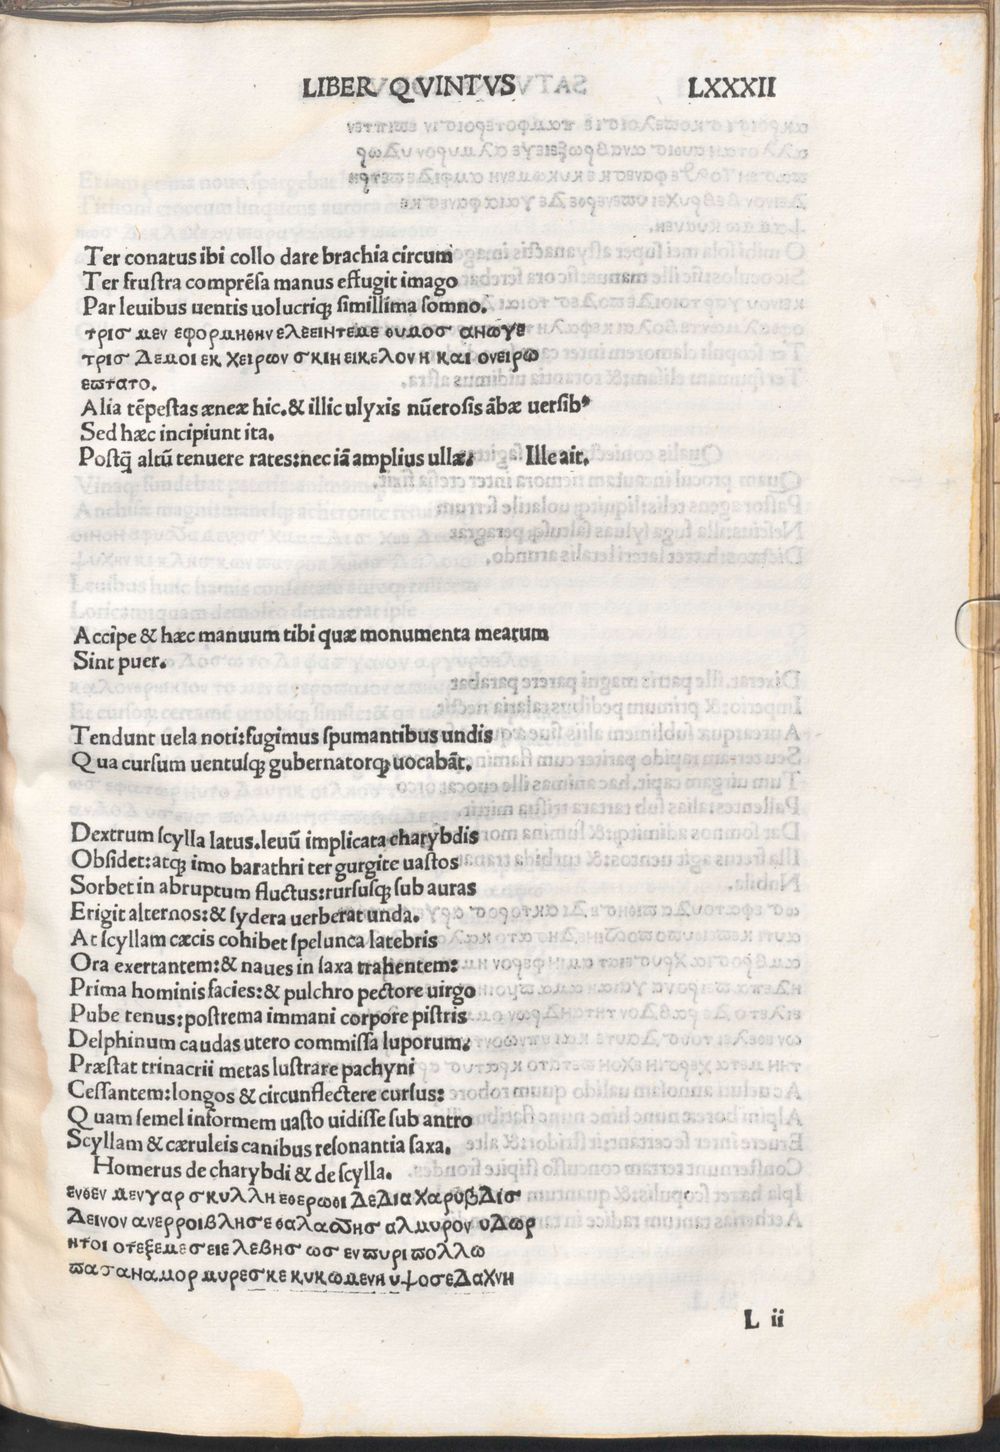 LIBER QVINTVS LXXXII
Ter conatus ibi collo dare brachia circum
Ter frustra comprẽsa manus effugit imago
Par leuibus uentis uolucriqꝫ simillima somno.
τρισ μεν εφορμηθην ελεειητεμε θυμοσ ανωγε
τρισ Δεμοι εκ χειρων σκιη εικελον η και ονειρω
επτατο.
Alia tẽpestas æneæ hic.& illic ulyxis nũerosis ãbæ uersibꝰ
Sed hæc incipiunt ita.
Postq̃ altũ tenuere rates:nec iã amplius ullæ: Ille ait.
Accipe & hæc manuum tibi quæ monumenta mearum
Sint puer.
Tendunt uela noti:fugimus spumantibus undis
Qua cursum uentusqꝫ gubernatorqꝫ uocabãt.
Dextrum scylla latus.leuũ implicata charybdis
Obsidet:atqꝫ imo barathri ter gurgite uastos
Sorbet in abruptum fluctus:rursusqꝫ sub auras
Erigit alternos:& sydera uerberat unda.
At scyllam cæcis cohibet spelunca latebris
Ora exertantem:& naues in saxa trahentem:
Prima hominis facies:& pulchro pectore uirgo
Pube tenus:postrema immani corpore pistris
Delphinum caudas utero commissa luporum:
Præstat trinacrii metas lustrare pachyni
Cessantem:longos & circunflectere cursus:
Quam semel informem uasto uidisse sub antro
Scyllam & cæruleis canibus resonantia saxa.
Homerus de charybdi & de scylla.
ενθεν μενγαρ σκυλλη εθερωθι ΔεΔια χαρυβΔισ
Δεινον ανερροιβλησε θαλασσησ αλμυρον υΔωρ
ητοι οτεξεμεσειε λεβησ ωσ εν πυρι πολλω
πασαναμορμυρεσκε κυκωμενη υψοσεΔαχνη
L ii